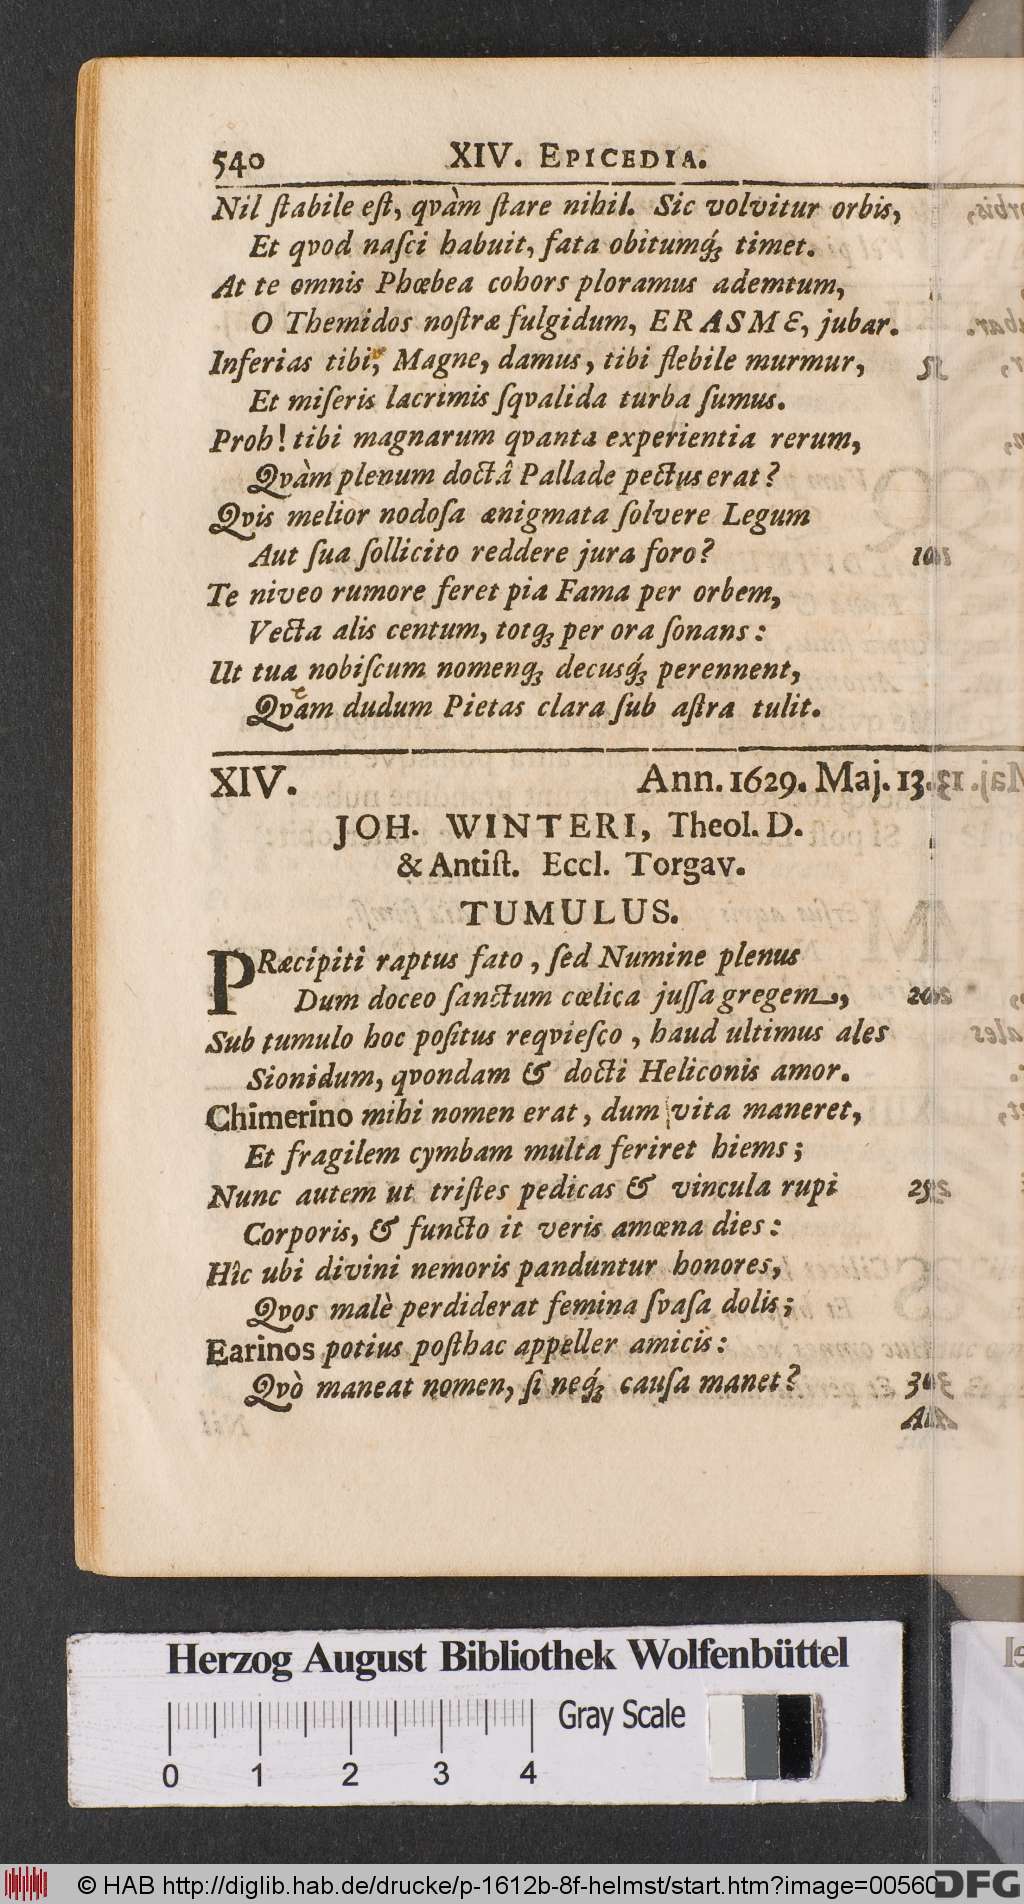 540 XIV. EPICEDIA.
Nil ſtabile eſt, qvàm ſtare nihil. Sic volvitur orbis,
Et qvod naſci habuit, fata obitumq́ꝫ timet.
At te omnis Phœbea cohors ploramus ademtum,
O Themidos noſtræ fulgidum, ERASME, jubar.
Inferias tibi, Magne, damus, tibi flebile murmur,
Et miſeris lacrimis ſqvalida turba ſumus.
Proh! tibi magnarum qvanta experientia rerum,
Qvàm plenum doctâ Pallade pectus erat?
Qvis melior nodoſa ænigmata ſolvere Legum
Aut ſua ſollicito reddere jura foro?
Te niveo rumore feret pia Fama per orbem,
Vecta alis centum, totqꝫ per ora ſonans:
Ut tua nobiſcum nomenqꝫ decusq́ꝫ perennent,
Qvam dudum Pietas clara ſub aſtra tulit.
XIV. Ann. 1629. Maj. 13.
JOH. WINTERI, Theol. D.
& Antiſt. Eccl. Torgav.
TUMULUS.
PRæcipiti raptus fato, ſed Numine plenus
Dum doceo ſanctum cœlica juſſa gregem,
Sub tumulo hoc poſitus reqvieſco, haud ultimus ales
Sionidum, qvondam & docti Heliconis amor.
Chimerino mihi nomen erat, dum vita maneret,
Et fragilem cymbam multa feriret hiems;
Nunc autem ut triſtes pedicas & vincula rupi
Corporis, & functo it veris amœna dies:
Hîc ubi divini nemoris panduntur honores,
Qvos malè perdiderat femina ſvaſa dolis;
Earinos potius poſthac appeller amicis:
Qvò maneat nomen, ſi neq́ꝫ cauſa manet?
Herzog August Bibliothek Wolfenbüttel
Gray Scale
0 1 2 3 4
© HAB http://diglib.hab.de/drucke/p-1612b-8f-helmst/start.htm?image=00560
DFG